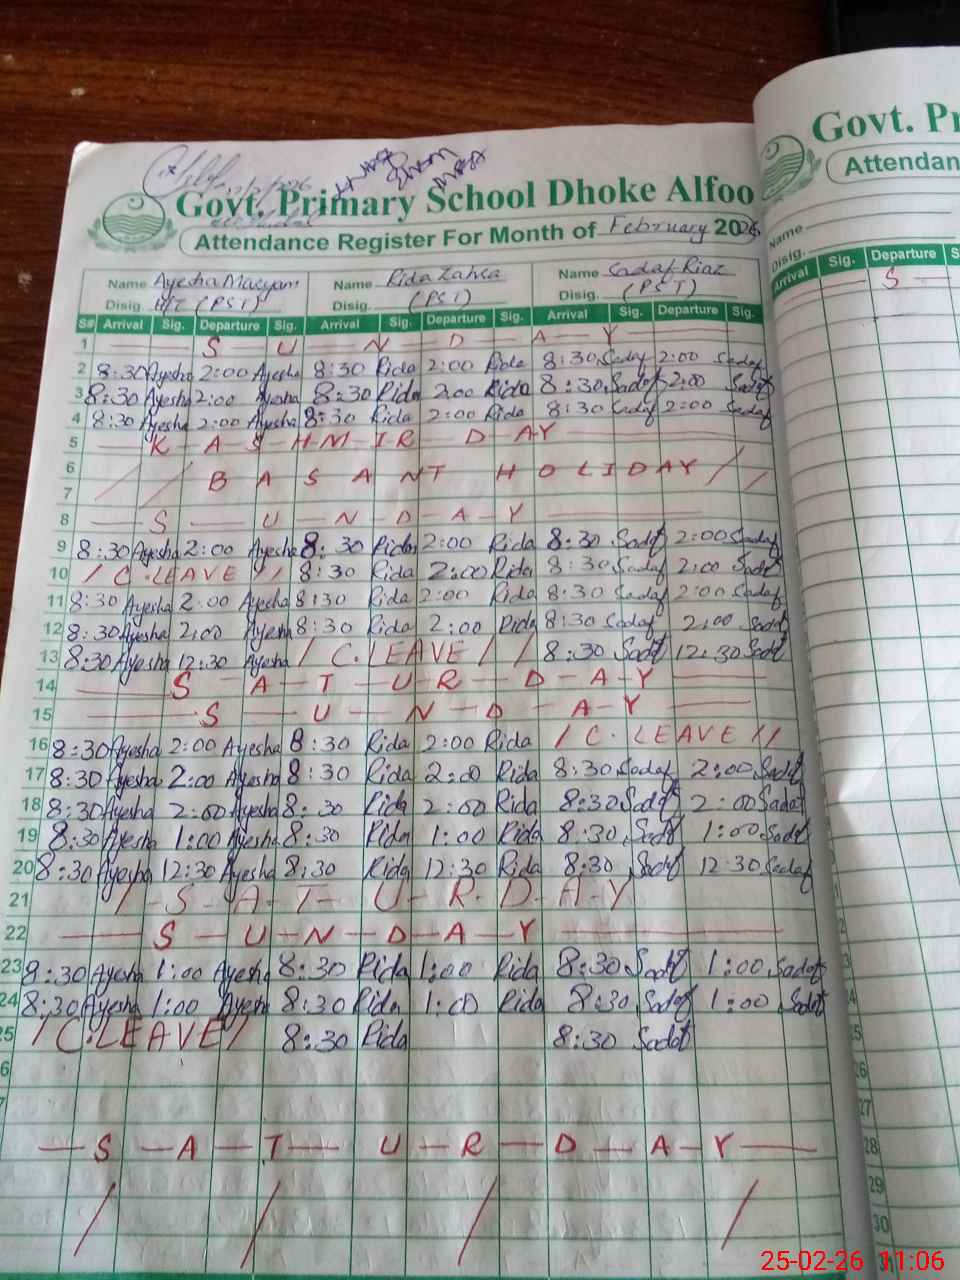 12/2/2026
Govt. Primary School Dhoke Alfoo
Attendance Register For Month of February 2026
Name Ayesha Maryam Name Rida Zahra Name Sadaf Riaz
Disig. H/T (PST) Disig. (PST) Disig. (PST)
S# Arrival Sig. Departure Sig. Arrival Sig. Departure Sig. Arrival Sig. Departure Sig.
1 S U N D A Y
2 8:30 Ayesha 2:00 Ayesha 8:30 Rida 2:00 Rida 8:30 Sadaf 2:00 Sadaf
3 8:30 Ayesha 2:00 Ayesha 8:30 Rida 2:00 Rida 8:30 Sadaf 2:00 Sadaf
4 8:30 Ayesha 2:00 Ayesha 8:30 Rida 2:00 Rida 8:30 Sadaf 2:00 Sadaf
5 K A S H M I R D A Y
6 B A S A N T H O L I D A Y
7
8 S U N D A Y
9 8:30 Ayesha 2:00 Ayesha 8:30 Rida 2:00 Rida 8:30 Sadaf 2:00 Sadaf
10 / C.LEAVE // 8:30 Rida 2:00 Rida 8:30 Sadaf 2:00 Sadaf
11 8:30 Ayesha 2:00 Ayesha 8:30 Rida 2:00 Rida 8:30 Sadaf 2:00 Sadaf
12 8:30 Ayesha 2:00 Ayesha 8:30 Rida 2:00 Rida 8:30 Sadaf 2:00 Sadaf
13 8:30 Ayesha 12:30 Ayesha / C.LEAVE / / 8:30 Sadaf 12:30 Sadaf
14 S A T U R D A Y
15 S U N D A Y
16 8:30 Ayesha 2:00 Ayesha 8:30 Rida 2:00 Rida / C.LEAVE //
17 8:30 Ayesha 2:00 Ayesha 8:30 Rida 2:00 Rida 8:30 Sadaf 2:00 Sadaf
18 8:30 Ayesha 2:00 Ayesha 8:30 Rida 2:00 Rida 8:30 Sadaf 2:00 Sadaf
19 8:30 Ayesha 1:00 Ayesha 8:30 Rida 1:00 Rida 8:30 Sadaf 1:00 Sadaf
20 8:30 Ayesha 12:30 Ayesha 8:30 Rida 12:30 Rida 8:30 Sadaf 12:30 Sadaf
21 S A T U R D A Y
22 S U N D A Y
23 8:30 Ayesha 1:00 Ayesha 8:30 Rida 1:00 Rida 8:30 Sadaf 1:00 Sadaf
24 8:30 Ayesha 1:00 Ayesha 8:30 Rida 1:00 Rida 8:30 Sadaf 1:00 Sadaf
25 / C.LEAVE / 8:30 Rida 8:30 Sadaf
6
7
S A T U R D A Y
Govt. Pr
Attendan
Name
Disig.
Arrival Sig. Departure S
S
26
27
28
29
30
25-02-26 11:06